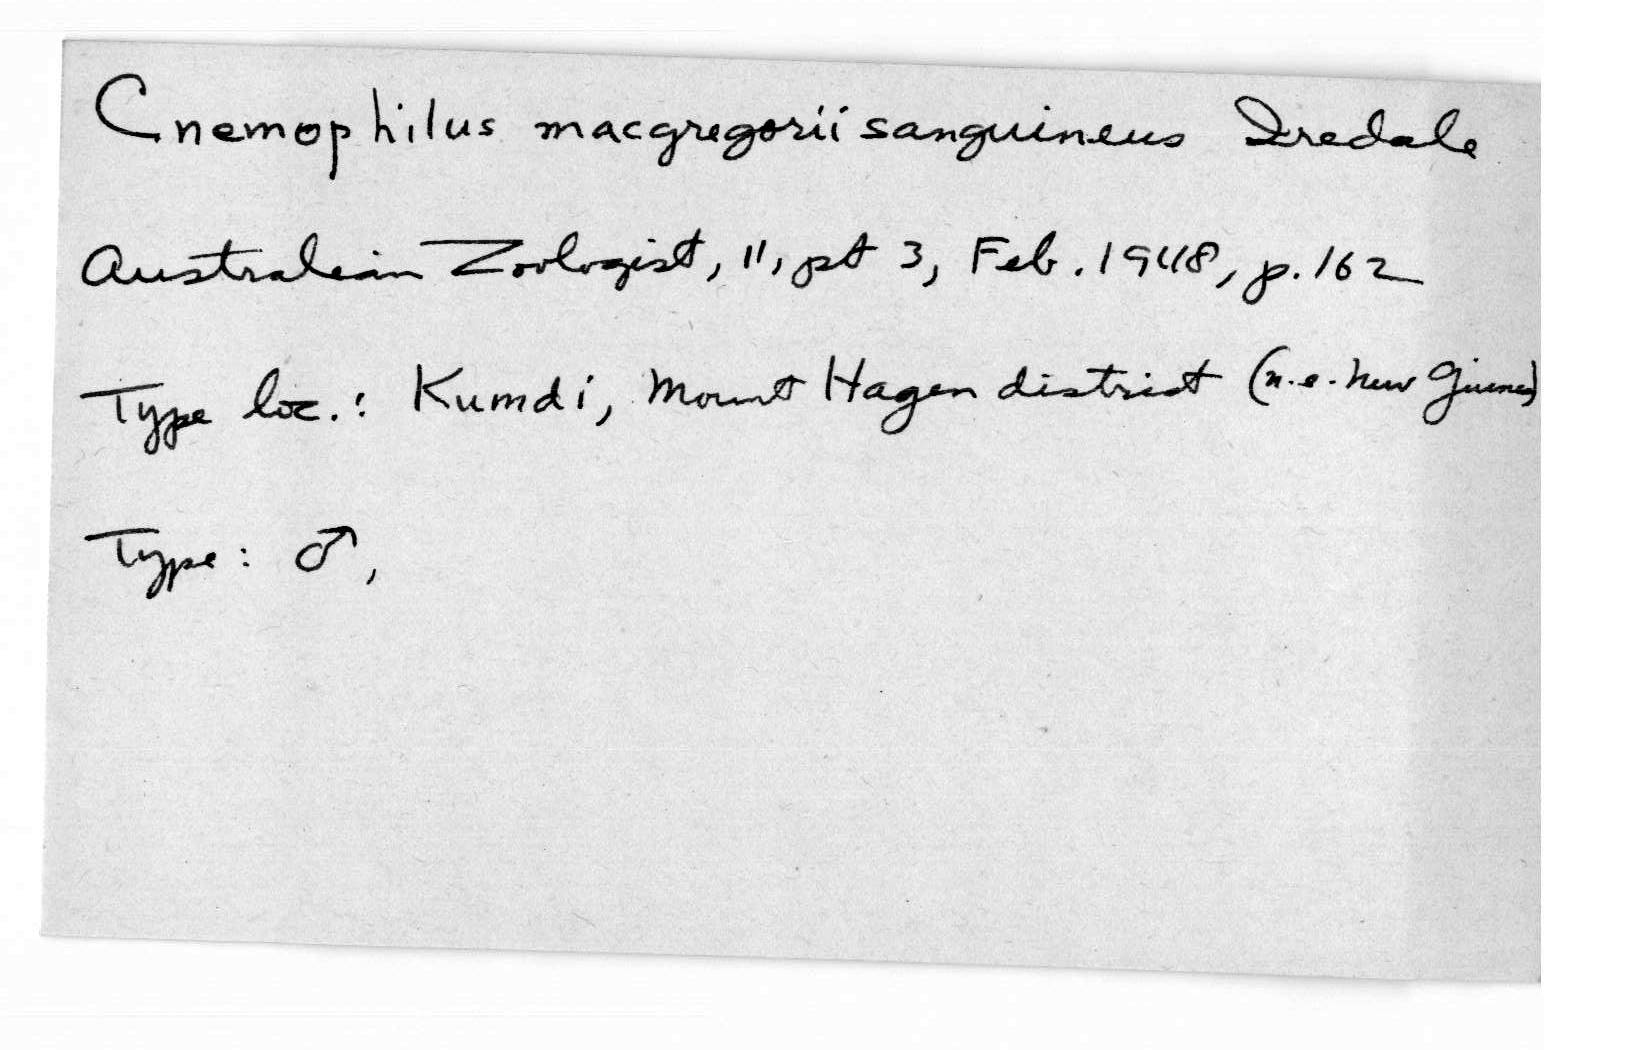 Cnemophilus macgregorii sanguineus Iredale
Australian Zoologist, 11, pt 3, Feb. 1948, p. 162
Type loc.: Kumdi, Mount Hagen district (n.e. New Guinea)
Type: ♂,